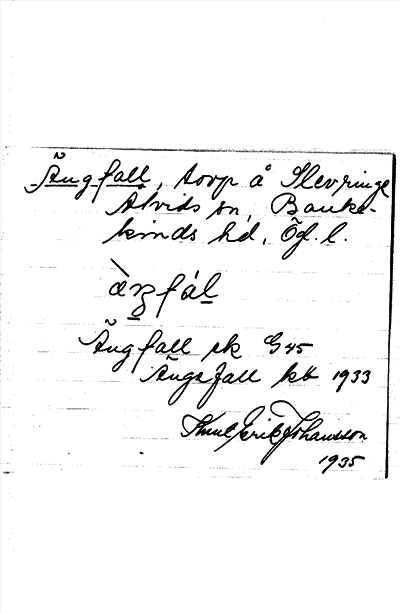 Ängfall, torp å Slevringe
Atvids sn, Banke-
kinds hd, Ög. l.
Ängfall sk G 45
Ängsfall kb 1933
Knut Erik Johansson
1935